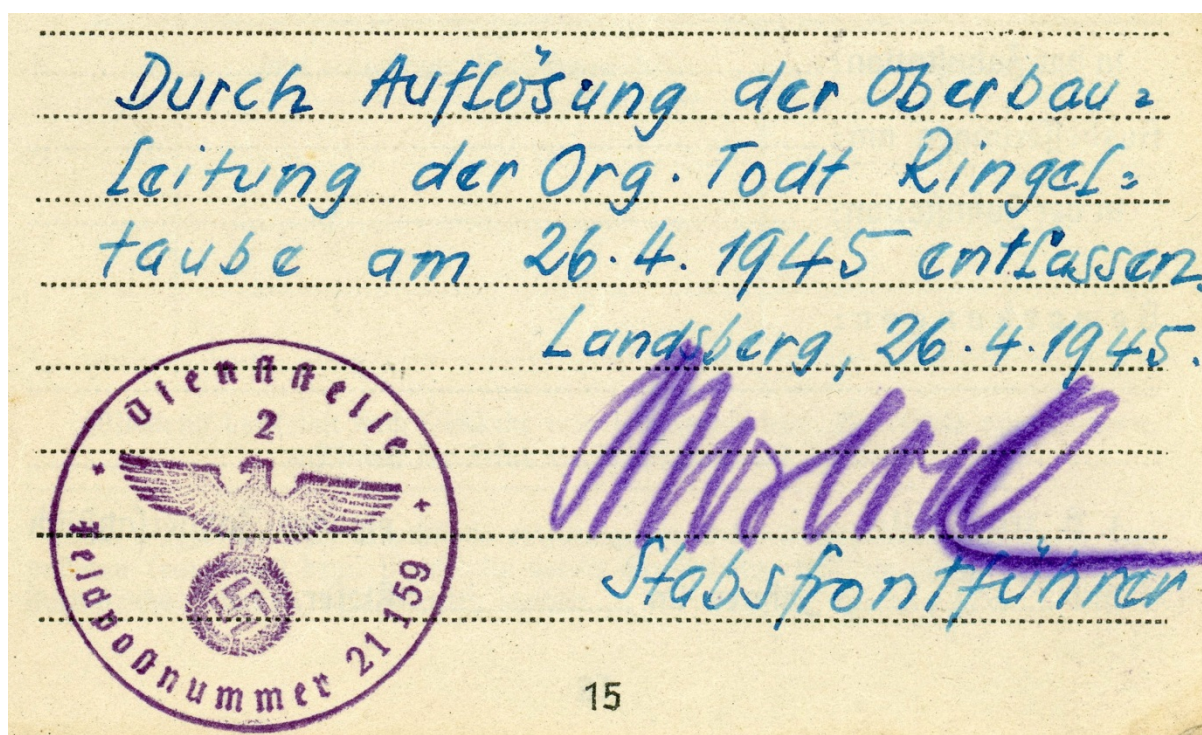 Durch Auflösung der Oberbau=
leitung der Org. Todt Ringel=
taube am 26.4.1945 entlassen.
Landsberg, 26.4.1945.
Stabsfrontführer
Dienststelle
2
Feldpostnummer 21159
15